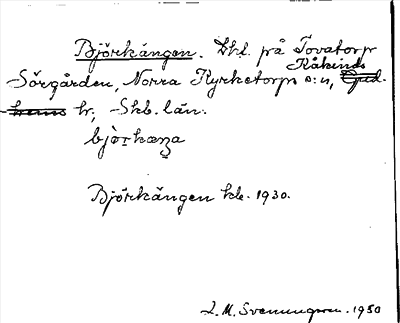 Björkängen. Lht. på Tovatorp
Sörgården, Norra Kyrketorps s:n, Kåkinds
hr, Skb. län.
bjö̀rkæŋa
Björkängen kb. 1930.
L. M. Svenungsson. 1950